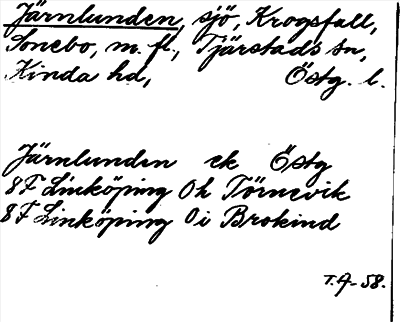 Järnlunden, sjö, Krogsfall,
Sonebo, m. fl., Tjärstads sn,
Kinda hd, Östg. l.
Järnlunden ek Östg
8F Linköping 0h Törnevik
8F Linköping 0i Brokind
T.A-58.